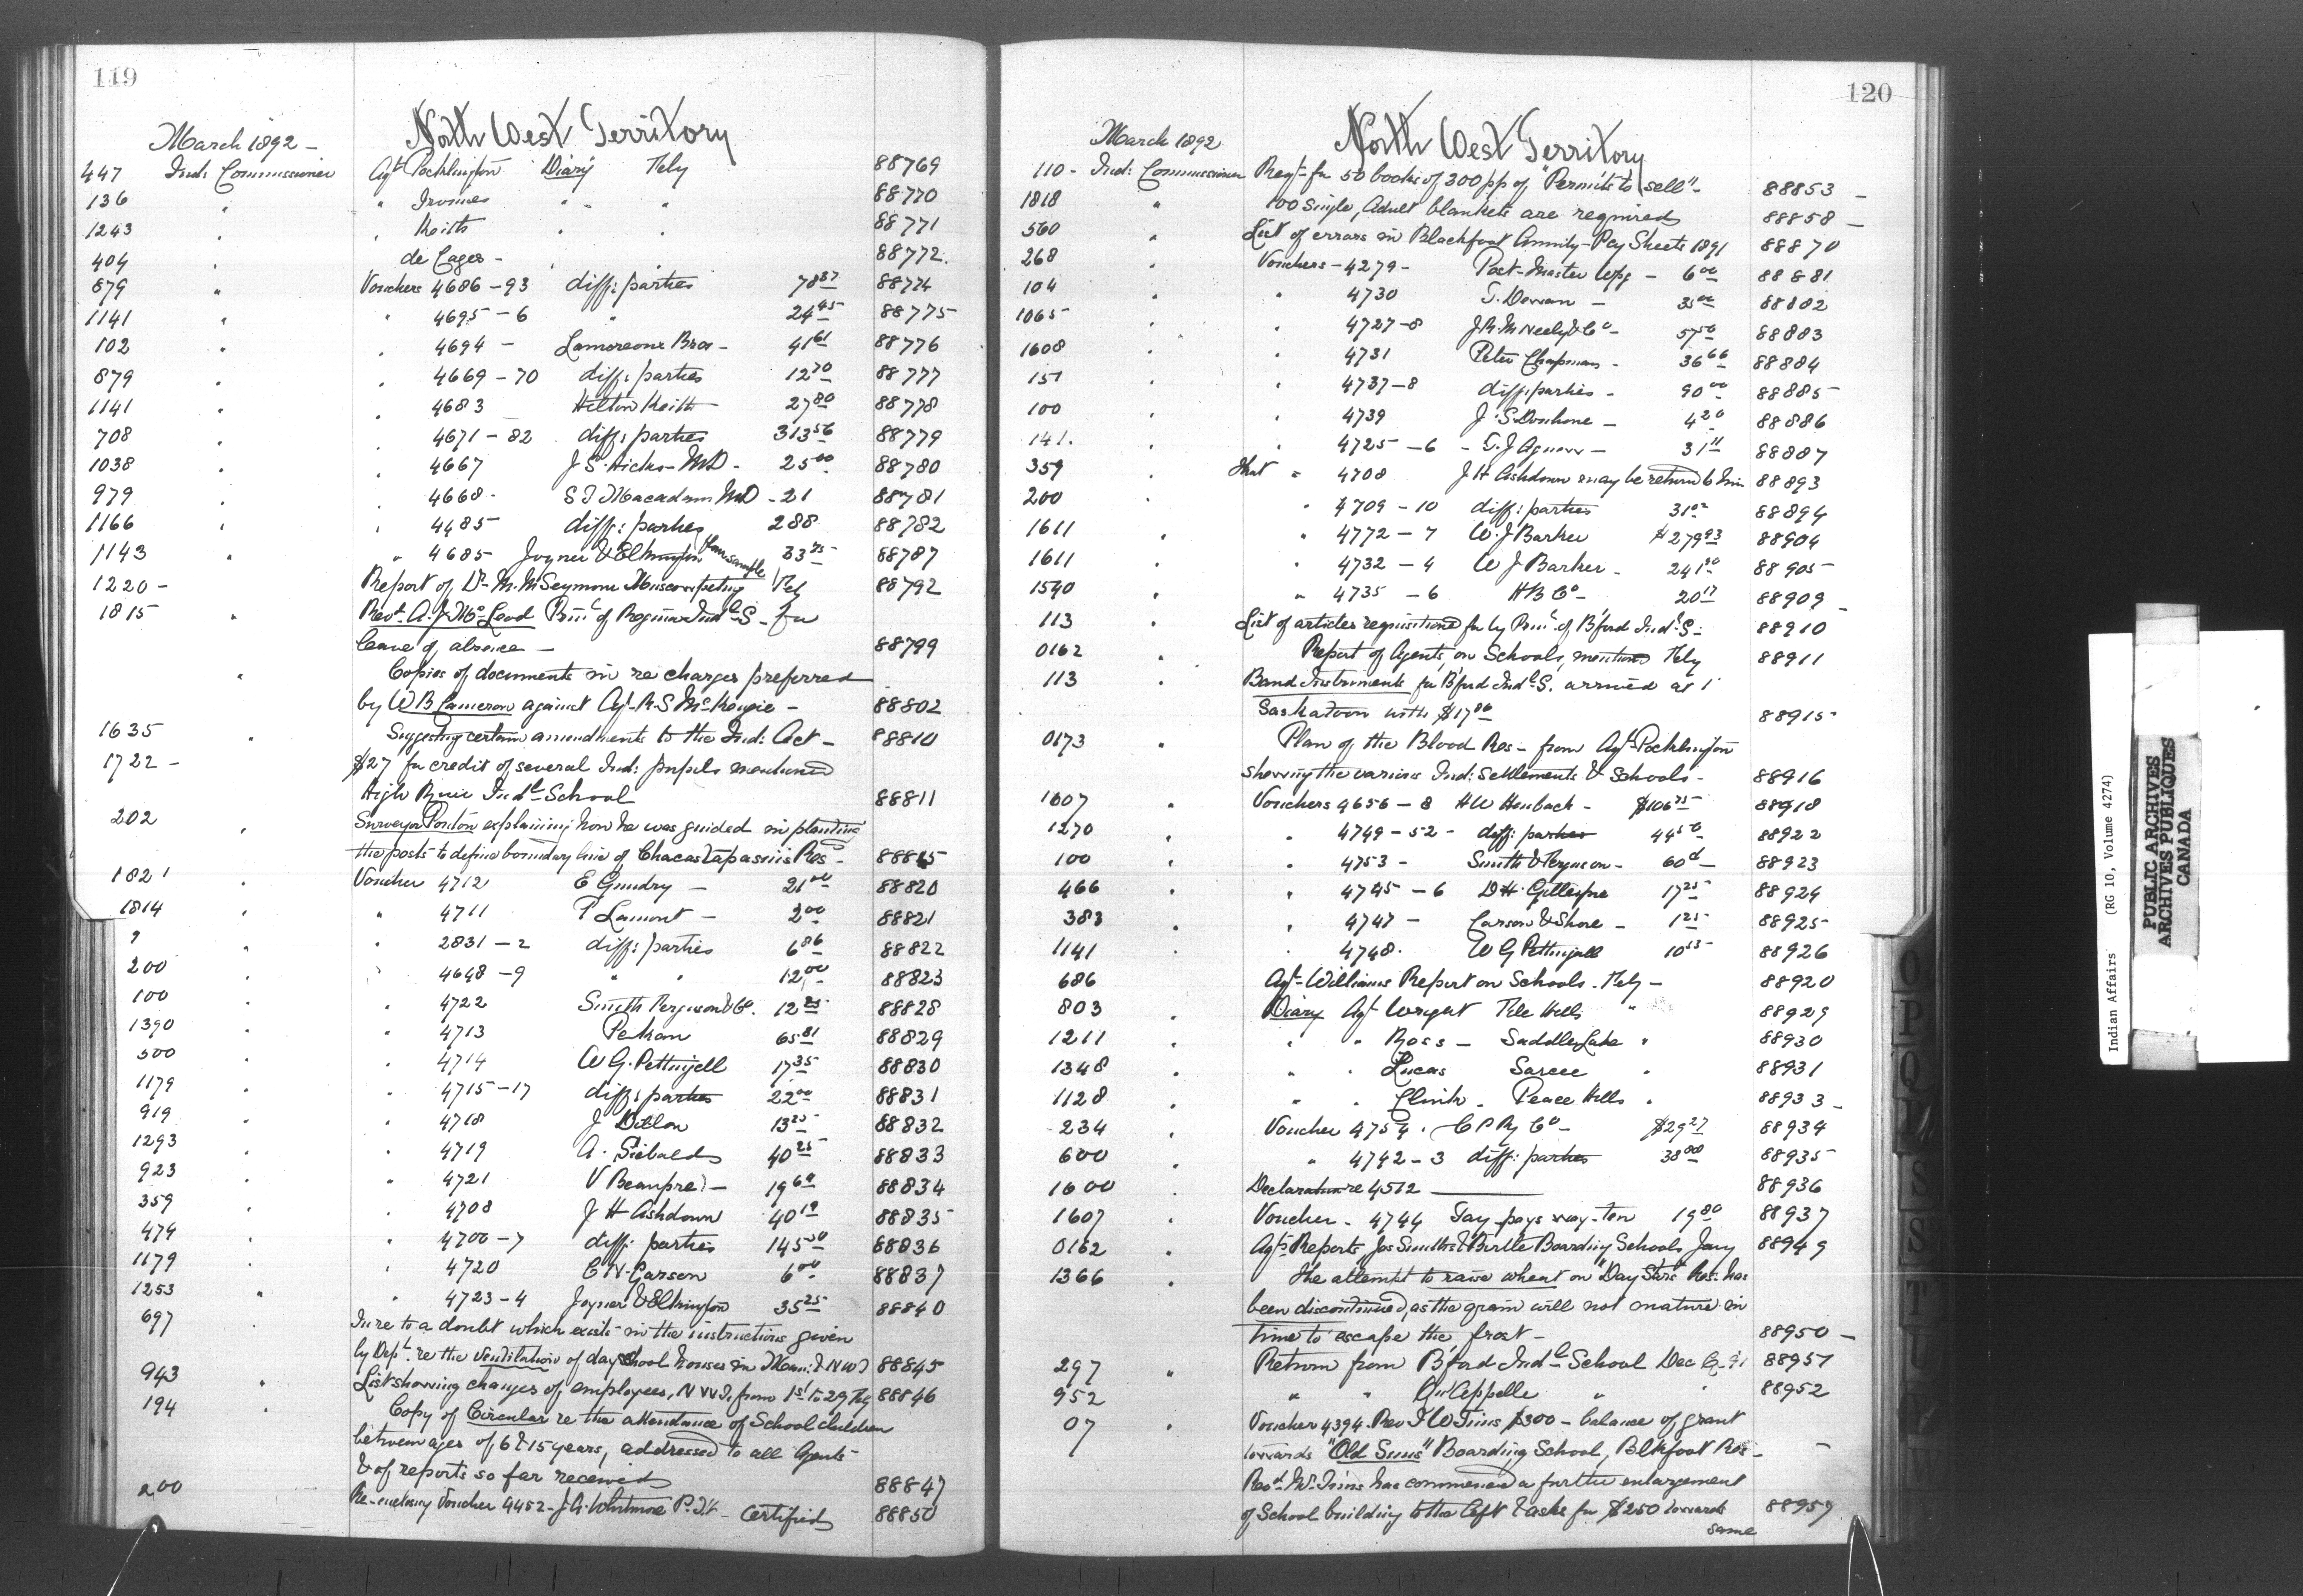 119
March 1892 —
North West Territory
447 Ind: Commissioner Agt Pocklington Diary Feby 88769
136 " " Irvines " " " 88770
1243 " " Keith " " 88771
404 " de Cazes - " " 88772
879 " Vouchers 4686-93 diff: parties 78 87 88774
1141 " " 4695-6 " 24 45 88775
102 " " 4694 - Lamoreoux Bros - 41 61 88776
879 " " 4669-70 diff: parties 12 70 88777
1141 " " 4683 Hilton Keith 27 80 88778
708 " " 4671-82 diff: parties 313 56 88779
1038 " " 4667 J S. Hicks - MD - 25 00 88780
979 " " 4668 - S J Macadam MD - 21 88781
1166 " " 4485 diff: parties 288 88782
1143 " " 4685 Joyner & Elkington 33 75 88787
1220 - Report of Dr M. M Seymour Feby 88792
1815 " Revt A. J. McLeod Prinl of Regina Indl S - for
leave of absence - 88799
" Copies of documents in re charges preferred
by W B Cameron against Agt R. S McKenzie - 88802
1635 " Suggesting certain amendments to the Ind: Act - 88810
1722 - $27 for credit of several Ind: pupils mentioned
High River Indl School 88811
202 " Surveyor Ponton explaining how he was guided in planting
the posts to define boundary line of Chacastapasins Res - 88815
1821 " Voucher 4712 E Gundry - 21 00 88820
1814 " " 4711 P Lamont - 2 00 88821
9 " " 2831-2 diff: parties 6 86 88822
200 " " 4648-9 " " 12 00 88823
100 " " 4722 Smith Ferguson & Co. 12 25 88828
1390 " " 4713 65 81 88829
500 " " 4714 W G. Pettingell 17 35 88830
1179 " " 4715-17 diff: parties 22 00 88831
919 " " 4718 J Dillon 13 25 88832
1293 " " 4719 A. Siebalds 40 25 88833
923 " " 4721 V Beaupre - 19 60 88834
359 " " 4708 J H Ashdown 40 19 88835
474 " " 4700-7 diff: parties 145 50 88836
1179 " " 4720 C N. Garson 6 00 88837
1253 " " 4723-4 Joyner & Elkington 35 25 88840
697 " In re to a doubt which exists in the instructions given
by Dept. re the ventilation of day school houses in Man: & NWT 88845
943 " List showing changes of employees, N W T, from 1st to 29 Feby 88846
194 " Copy of Circular re the attendance of School children
between ages of 6 & 15 years, addressed to all Agents
& of reports so far received 88847
200 Re-enclosing Voucher 4452 - J. A. Whitmore P. A. Certified 88850
120
March 1892
North West Territory
110 - Ind: Commissioner Reqt for 50 books of 300 pp of "Permits to sell" - 88853 -
1818 " 100 Single, Adult blankets are required 88858 -
560 " List of errors in Blackfoot Annuity-Pay Sheets 1891 88870
268 " Vouchers - 4279 - Post-Master Wpg - 6 00 88881
104 " " 4730 T. Dorran - 35 00 88882
1065 " " 4727-8 J R. McNeely & Co - 57 50 88883
1608 " " 4731 Peter Chapman - 36 66 88884
151 " " 4737-8 diff: parties - 90 00 88885
100 " " 4739 J. S Donhone - 4 20 88886
141. " " 4725-6 - T. J Agnew - 31 11 88887
359 " That " 4708 J H Ashdown may be returned to him 88893
200 " " 4709-10 diff: parties 31 02 88894
1611 " " 4772-7 W. J Barker $279 93 88904
1611 " " 4732-4 W J Barker - 241 20 88905
1540 " " 4735-6 H B Co - 20 17 88909 -
113 " List of articles requisitioned for by Prinl of B'ford Indl S - 88910
0162 " Report of Agents, on Schools, mentioned Feby 88911
113 " Band Instruments for B'ford Indl S. arrived at
Saskatoon with $17 86 88915
0173 " Plan of the Blood Res - from Agt Pocklington
showing the various Ind: Settlements & Schools - 88916
1607 " Vouchers 4656-8 H W Heubach - $106 75 88918
1270 " " 4749-52 - diff: parties 44 50 88922
100 " " 4753 - Smith & Ferguson - 60 ct - 88923
466 " " 4745-6 D H. Gillespie 17 25 88924
383 " " 4747 - Carson & Shore - 1 25 88925
1141 " 4748. W G Pettingell 10 53 88926
686 Agt Williams Report on Schools. Feby - 88920
803 " Diary Agt Wright File Hills " 88929
1211 " " " Ross - Saddle Lake " 88930
1348 " " " Lucas Sarcee " 88931
1128 " " " Clink - Peace Hills " 88933 -
234 " Voucher 4754. C P Ry Co - $29 27 88934
600 " " 4742-3 diff: parties 38 80 88935
1600 " Declaration re 4512 88936
1607 " Voucher - 4744 Tay-pays-way-ten 19 80 88937
0162 " Agts Reports Jas Smiths & Birtle Boarding Schools Jany 88949
1366 " The attempt to raise wheat on "Day Stars" Res: has
been discontinued, as the grain will not mature in
time to escape the frost - 88950 -
297 " Return from B'ford Indl School Dec Q. 91 88951
952 " " Qu'Appelle " " 88952
07 " Voucher 4394. Rev J W Tims, $300 - balance of grant
towards "Old Suns" Boarding School, Blkfoot Res - -
Revd Mr Tims has commenced a further enlargement
of School building to the left & asks for $250 towards 88959
same
Indian Affairs (RG 10, Volume 4274)
PUBLIC ARCHIVES
ARCHIVES PUBLIQUES
CANADA
O
P
Q
S
S
T
U